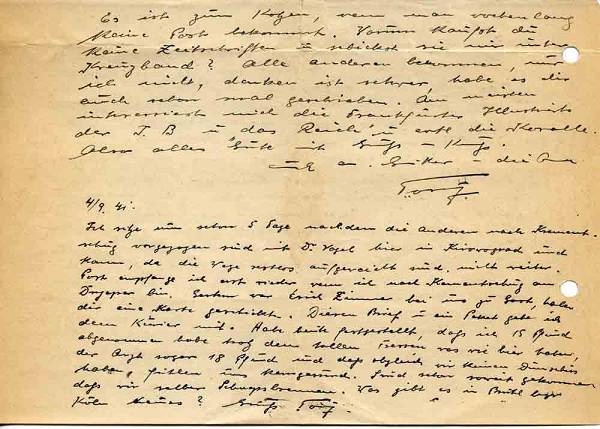 Es ist zum Kotzen, wenn man wochenlang
keine Post bekommt. Warum kaufst du
keine Zeitschriften u schickst sie mir unter
Kreuzband? Alle anderen bekommen, nur
ich nicht, ist schwer, habe es dir
auch schon mal geschrieben. Am meisten
interessiert mich die Frankfurter Illustrierte
der I. B u „das Reich" u evtl die Koralle.
Also alles Gute ist Gruß u Kuß.
an u die
4/9. 41.
Ich sitze nun schon 5 Tage nachdem die anderen nach Krement
schug vorgezogen sind mit Dr. Vogel hier in Kirovograd und
kann, da die Wege restlos aufgeweicht sind, nicht weiter.
Post empfange ich erst wieder wenn ich nach Krementschug am
Dnjeper bin. Gestern war Erich Zimmer bei uns zu Gast, haben
dir eine Karte geschickt. Diesen Brief u ein Paket gebe ich
dem Kurier mit. Habe heute festgestellt, daß ich 15 Pfund
abgenommen habe trotz dem tollen Fressen was wir hier haben,
der Arzt sogar 18 Pfund und daß obgleich wir keinen Dünschiß
haben, fühlen uns kerngesund. Sind schon soweit gekommen
daß wir selber Schnapsbrennen. Was gibt es in Brühl bzw
Köln Neues? Gruß